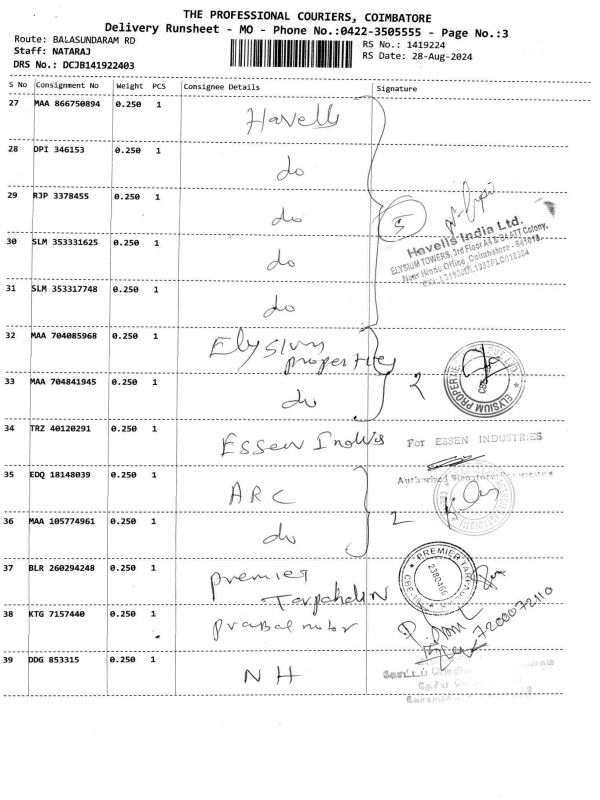 THE PROFESSIONAL COURIERS, COIMBATORE
Delivery Runsheet - MO - Phone No.:0422-3505555 - Page No.:3
Route: BALASUNDARAM RD
Staff: NATARAJ
DRS No.: DCJB141922403
RS No.: 1419224
RS Date: 28-Aug-2024
S No Consignment No Weight PCS Consignee Details Signature
27 MAA 866750894 0.250 1 Havells
28 DPI 346153 0.250 1 do
29 RJP 3378455 0.250 1 do
5
Havells India Ltd.
ELYSIUM TOWERS, 3rd Floor A4 & B4 ATT Colony,
Near Hindu Office, Coimbatore - 641018.
30 SLM 353331625 0.250 1 do
31 SLM 353317748 0.250 1 do
32 MAA 704085968 0.250 1 Elysium
properties
ELYSIUM PROPERTIES
33 MAA 704841945 0.250 1 do 2
34 TRZ 40120291 0.250 1 Essen Indus
For ESSEN INDUSTRIES
35 EDQ 18148039 0.250 1 ARC
36 MAA 105774961 0.250 1 do 2
37 BLR 260294248 0.250 1 premier
PREMIER TARPAULIN
2380466
38 KTG 7157440 0.250 1
7200072110
39 DDG 853315 0.250 1 NH